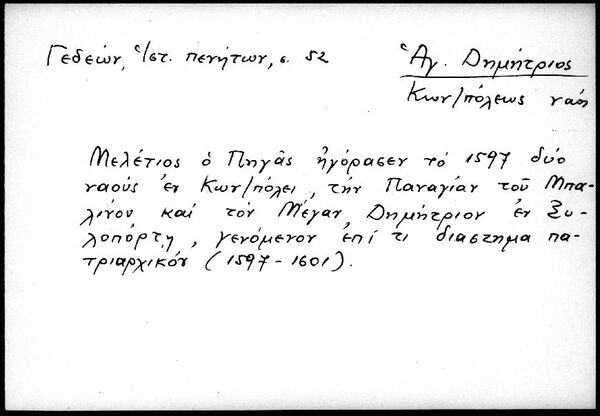 Γεδεών, Ἱστ. πενήτων, σ. 52
Ἁγ. Δημήτριος
Κων/πόλεως ναός
Μελέτιος ὁ Πηγᾶς ἠγόρασεν τό 1597 δύο
ναούς ἐν Κων/πόλει, τήν Παναγίαν τοῦ Μπα-
λίνου καί τόν Μέγαν Δημήτριον ἐν Ξυ-
λοπόρτῃ, γενόμενον ἐπί τι διάστημα πα-
τριαρχικόν (1597-1601).